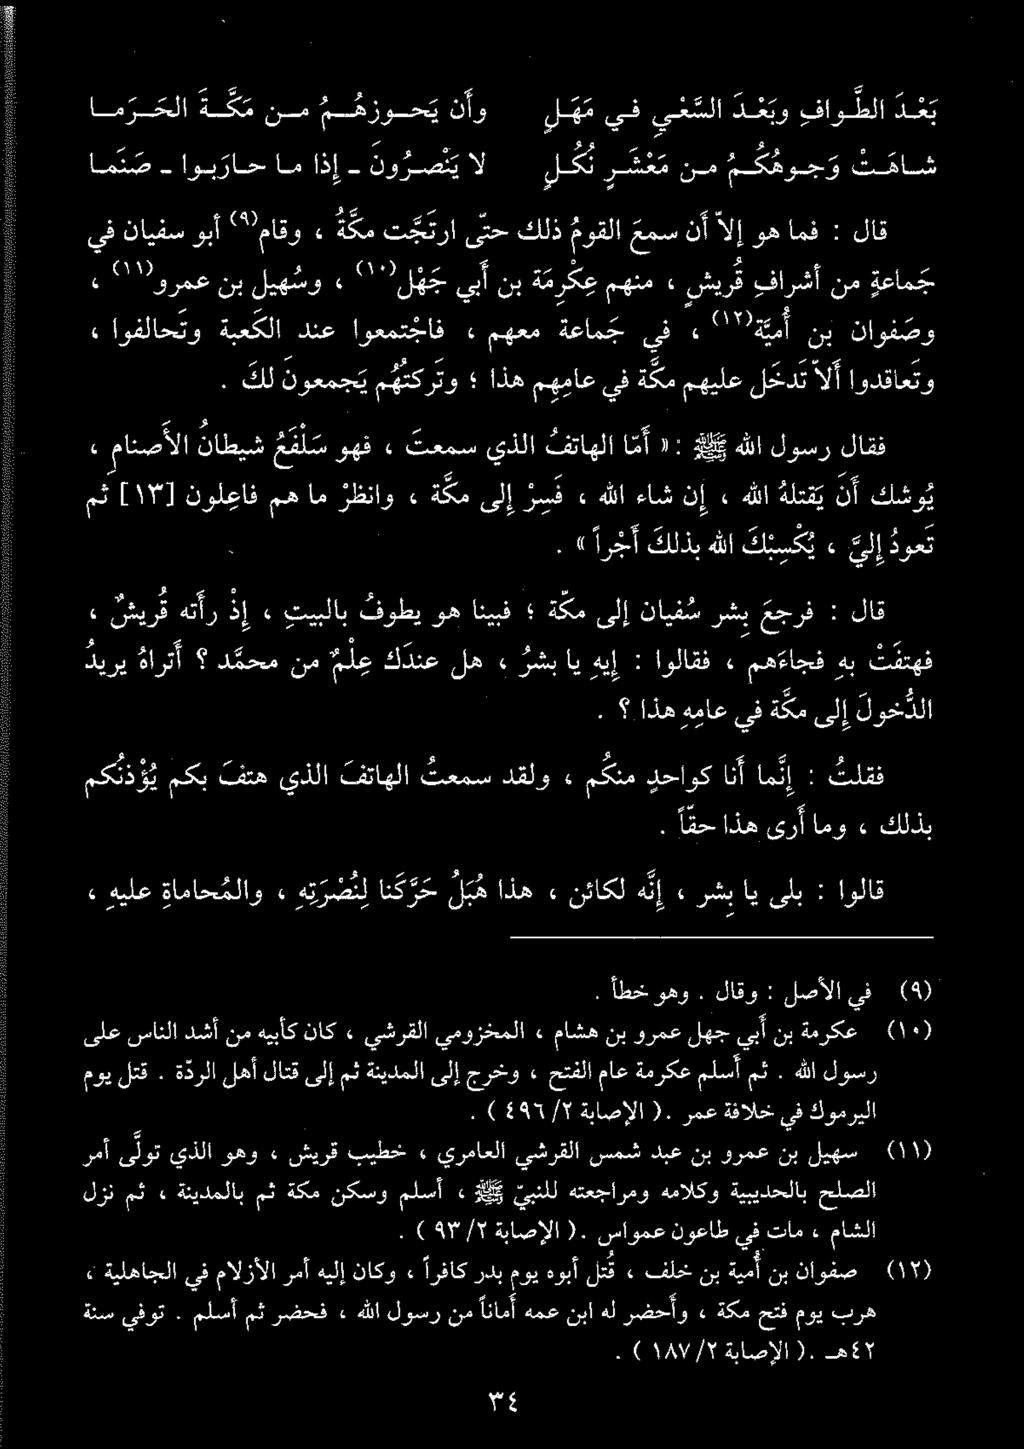 بَعْدَ الطَّوافِ وبَعْدَ السَّعْيِ في مَهَلٍ وأَن يَحوزهُمُ من مَكَّةَ الحَرَما
شاهَتْ وَجوهُكُمُ من مَعْشَرٍ نُكُلٍ لا يَنْصرُونَ - إذا ما حاربوا - صَنَما
قال : فما هو إلاّ أَن سمعَ القومُ ذلك حتّى ارتَجَّت مكّةُ ، وقام(٩) أبو سفيان في
جَماعةٍ من أَشرافِ قُريشٍ ، منهم عِكْرِمَة بن أَبي جَهْل(١٠) ، وسُهيل بن عمرو(١١) ،
وصَفوان بن أُميَّة(١٢) ، في جَماعة معهم ، فاجتَمعوا عند الكَعبة وتَحالفوا ،
وتَعاقدوا أَلاّ تَدخلَ عليهم مكّة في عامِهم هذا ؛ وتَركتهُم يَجمعونَ لكَ .
فقال رسول الله ﷺ : « أَمّا الهاتفُ الذي سمعتَ ، فهو سَلْفَعُ شيطانُ الأَصنامِ ،
يُوشك أَنْ يَقتلهُ الله ، إن شاء الله ، فَسِرْ إلى مكّة ، وانظرْ ما هم فاعِلون [١٣] ثم
تَعودُ إليَّ ، يُكْسِبْكَ الله بذلكَ أَجْراً » .
قال : فرجعَ بِشر سُفيان إلى مكّة ؛ فبينا هو يطوفُ بالبيتِ ، إذْ رأَته قُريشٌ ،
فهتفَتْ بهِ فجاءَهم ، فقالوا : إيهِ يا بشرُ ، هل عندَكَ عِلْمٌ من محمَّد ؟ أَتراهُ يريدُ
الدُّخولَ إلى مكّة في عامِهِ هذا ؟ .
فقلتُ : إنَّما أَنا كواحدٍ منكُم ، ولقد سمعتُ الهاتفَ الذي هتفَ بكم يُؤْذنُكم
بذلك ، وما أَرى هذا حقّاً .
قالوا : بلى يا بِشر ، إنَّه لكائن ، هذا هُبَلُ حَرَّكنا لِنُصْرَتِهِ ، والمُحاماةِ عليهِ ،
(٩) في الأصل : وقال . وهو خطأ .
(١٠) عكرمة بن أَبي جهل عمرو بن هشام ، المخزومي القرشي ، كان كأبيه من أشد الناس على
رسول الله . ثم أَسلم عكرمة عام الفتح ، وخرج إلى المدينة ثم إلى قتال أهل الردّة . قتل يوم
اليرموك في خلافة عمر .( الإصابة ٢/ ٤٩٦ ) .
(١١) سهيل بن عمرو بن عبد شمس القرشي العامري ، خطيب قريش ، وهو الذي تولّى أمر
الصلح بالحديبية وكلامه ومراجعته للنبيّ ﷺ ، أسلم وسكن مكة ثم بالمدينة ، ثم نزل
الشام ، مات في طاعون عمواس .( الإصابة ٢/ ٩٣ ) .
(١٢) صفوان بن أُمية بن خلف ، قُتل أبوه يوم بدر كافراً ، وكان إليه أمر الأزلام في الجاهلية ،
هرب يوم فتح مكة ، وأحضر له ابن عمه أَماناً من رسول الله ، فحضر ثم أسلم . توفي سنة
٤٢هـ .( الإصابة ٢/ ١٨٧ ) .
٣٤